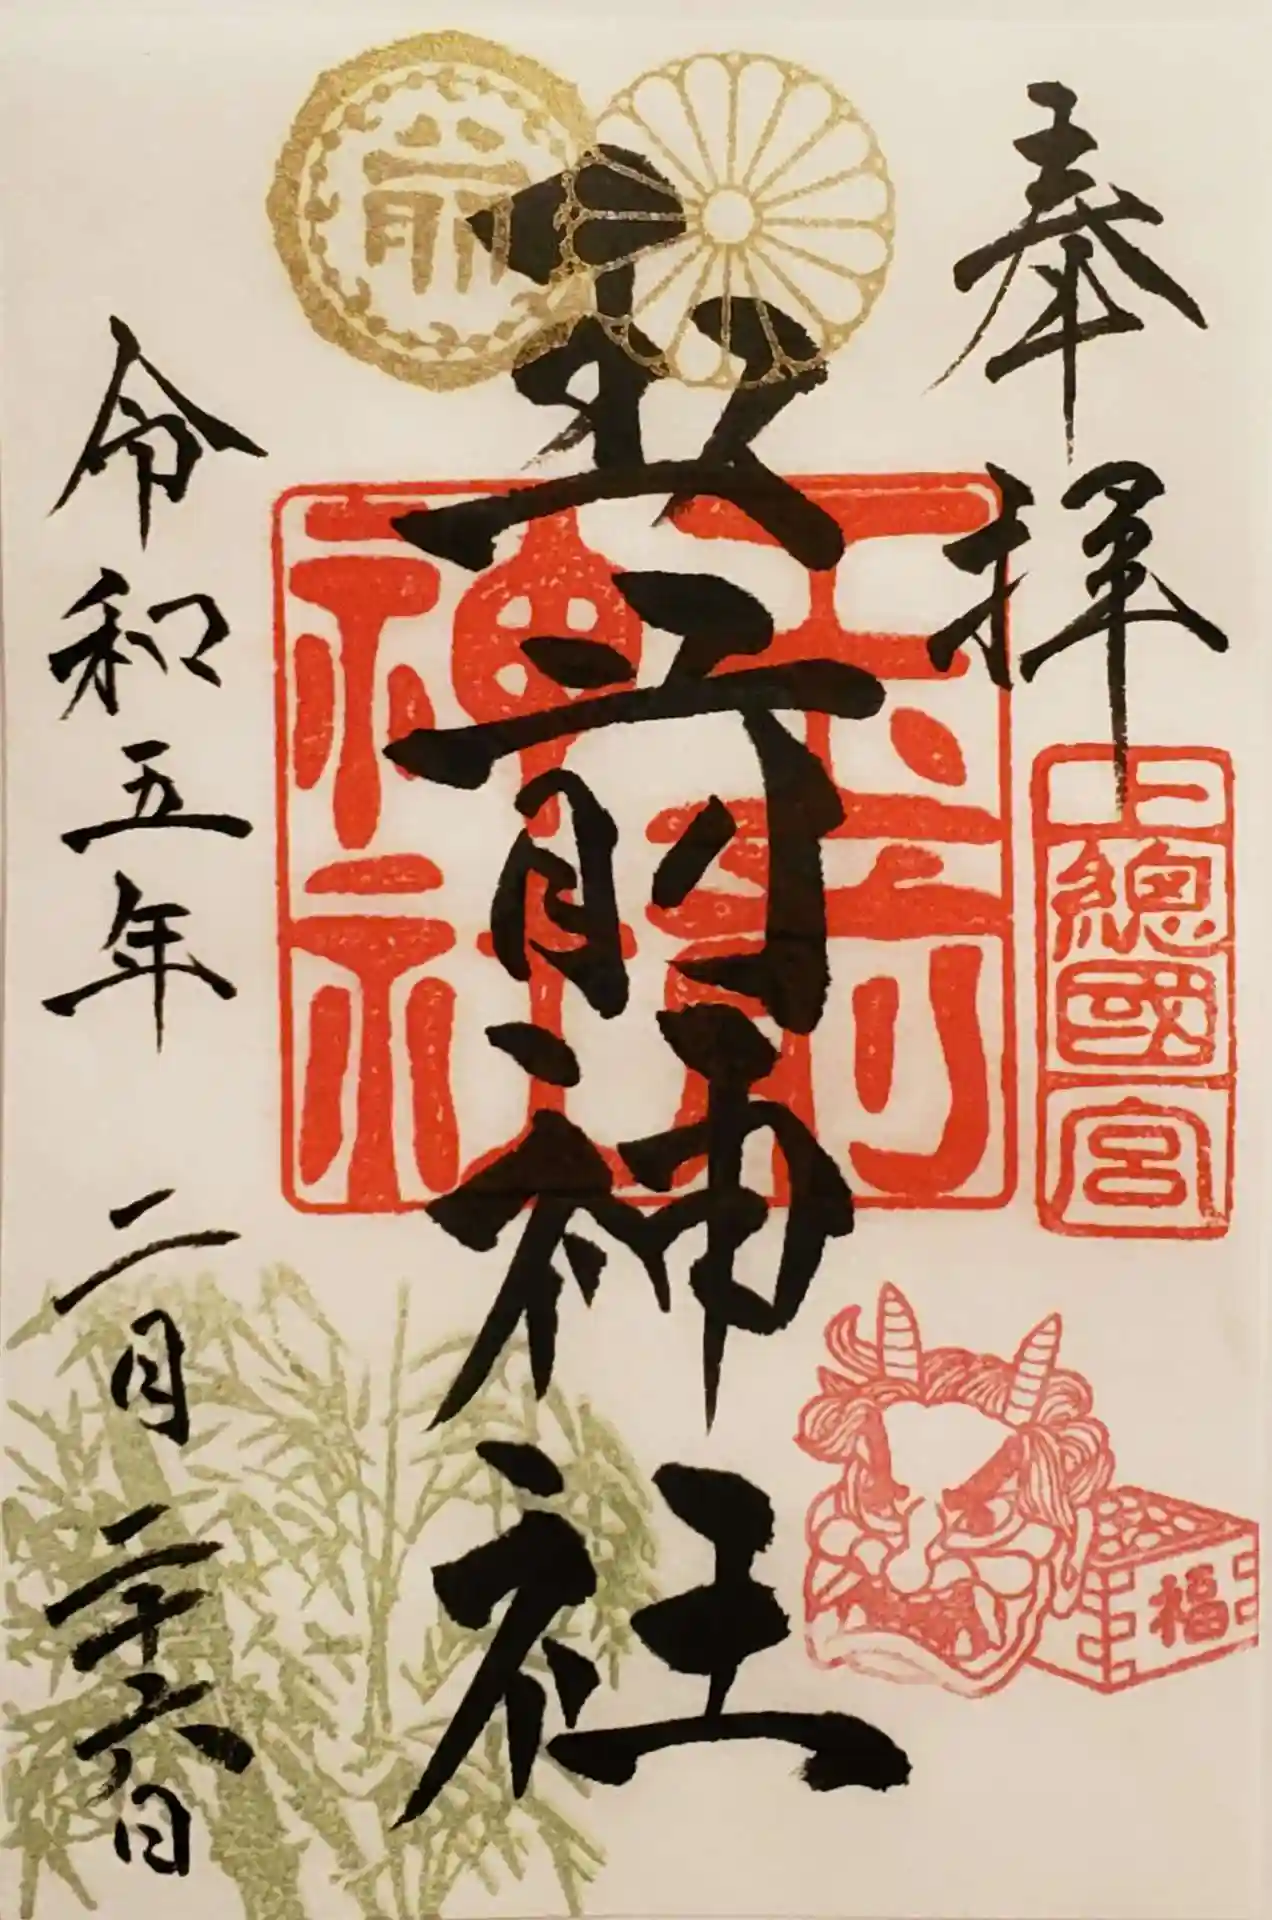 奉拝
上總國一宮
玉前神社
玉前神社
前
福
令和五年 二月 二十六日